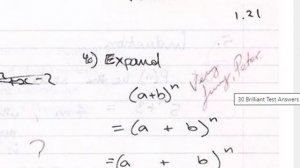 1.21
4c) Expand
+x-2
(a+b)ⁿ
Very funny, Peter.
30 Brilliant Test Answers
= (a + b)ⁿ
?
= (a + b)